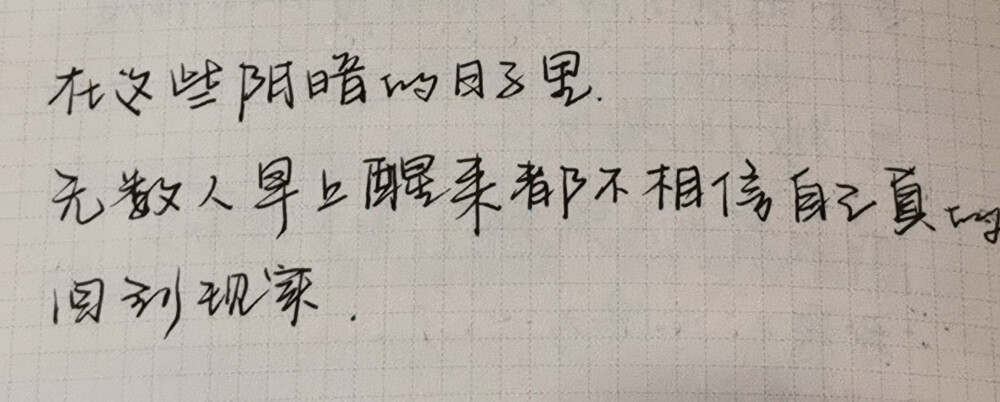 在这些阴暗的日子里.
无数人早上醒来都不相信自己真的
回到现实.